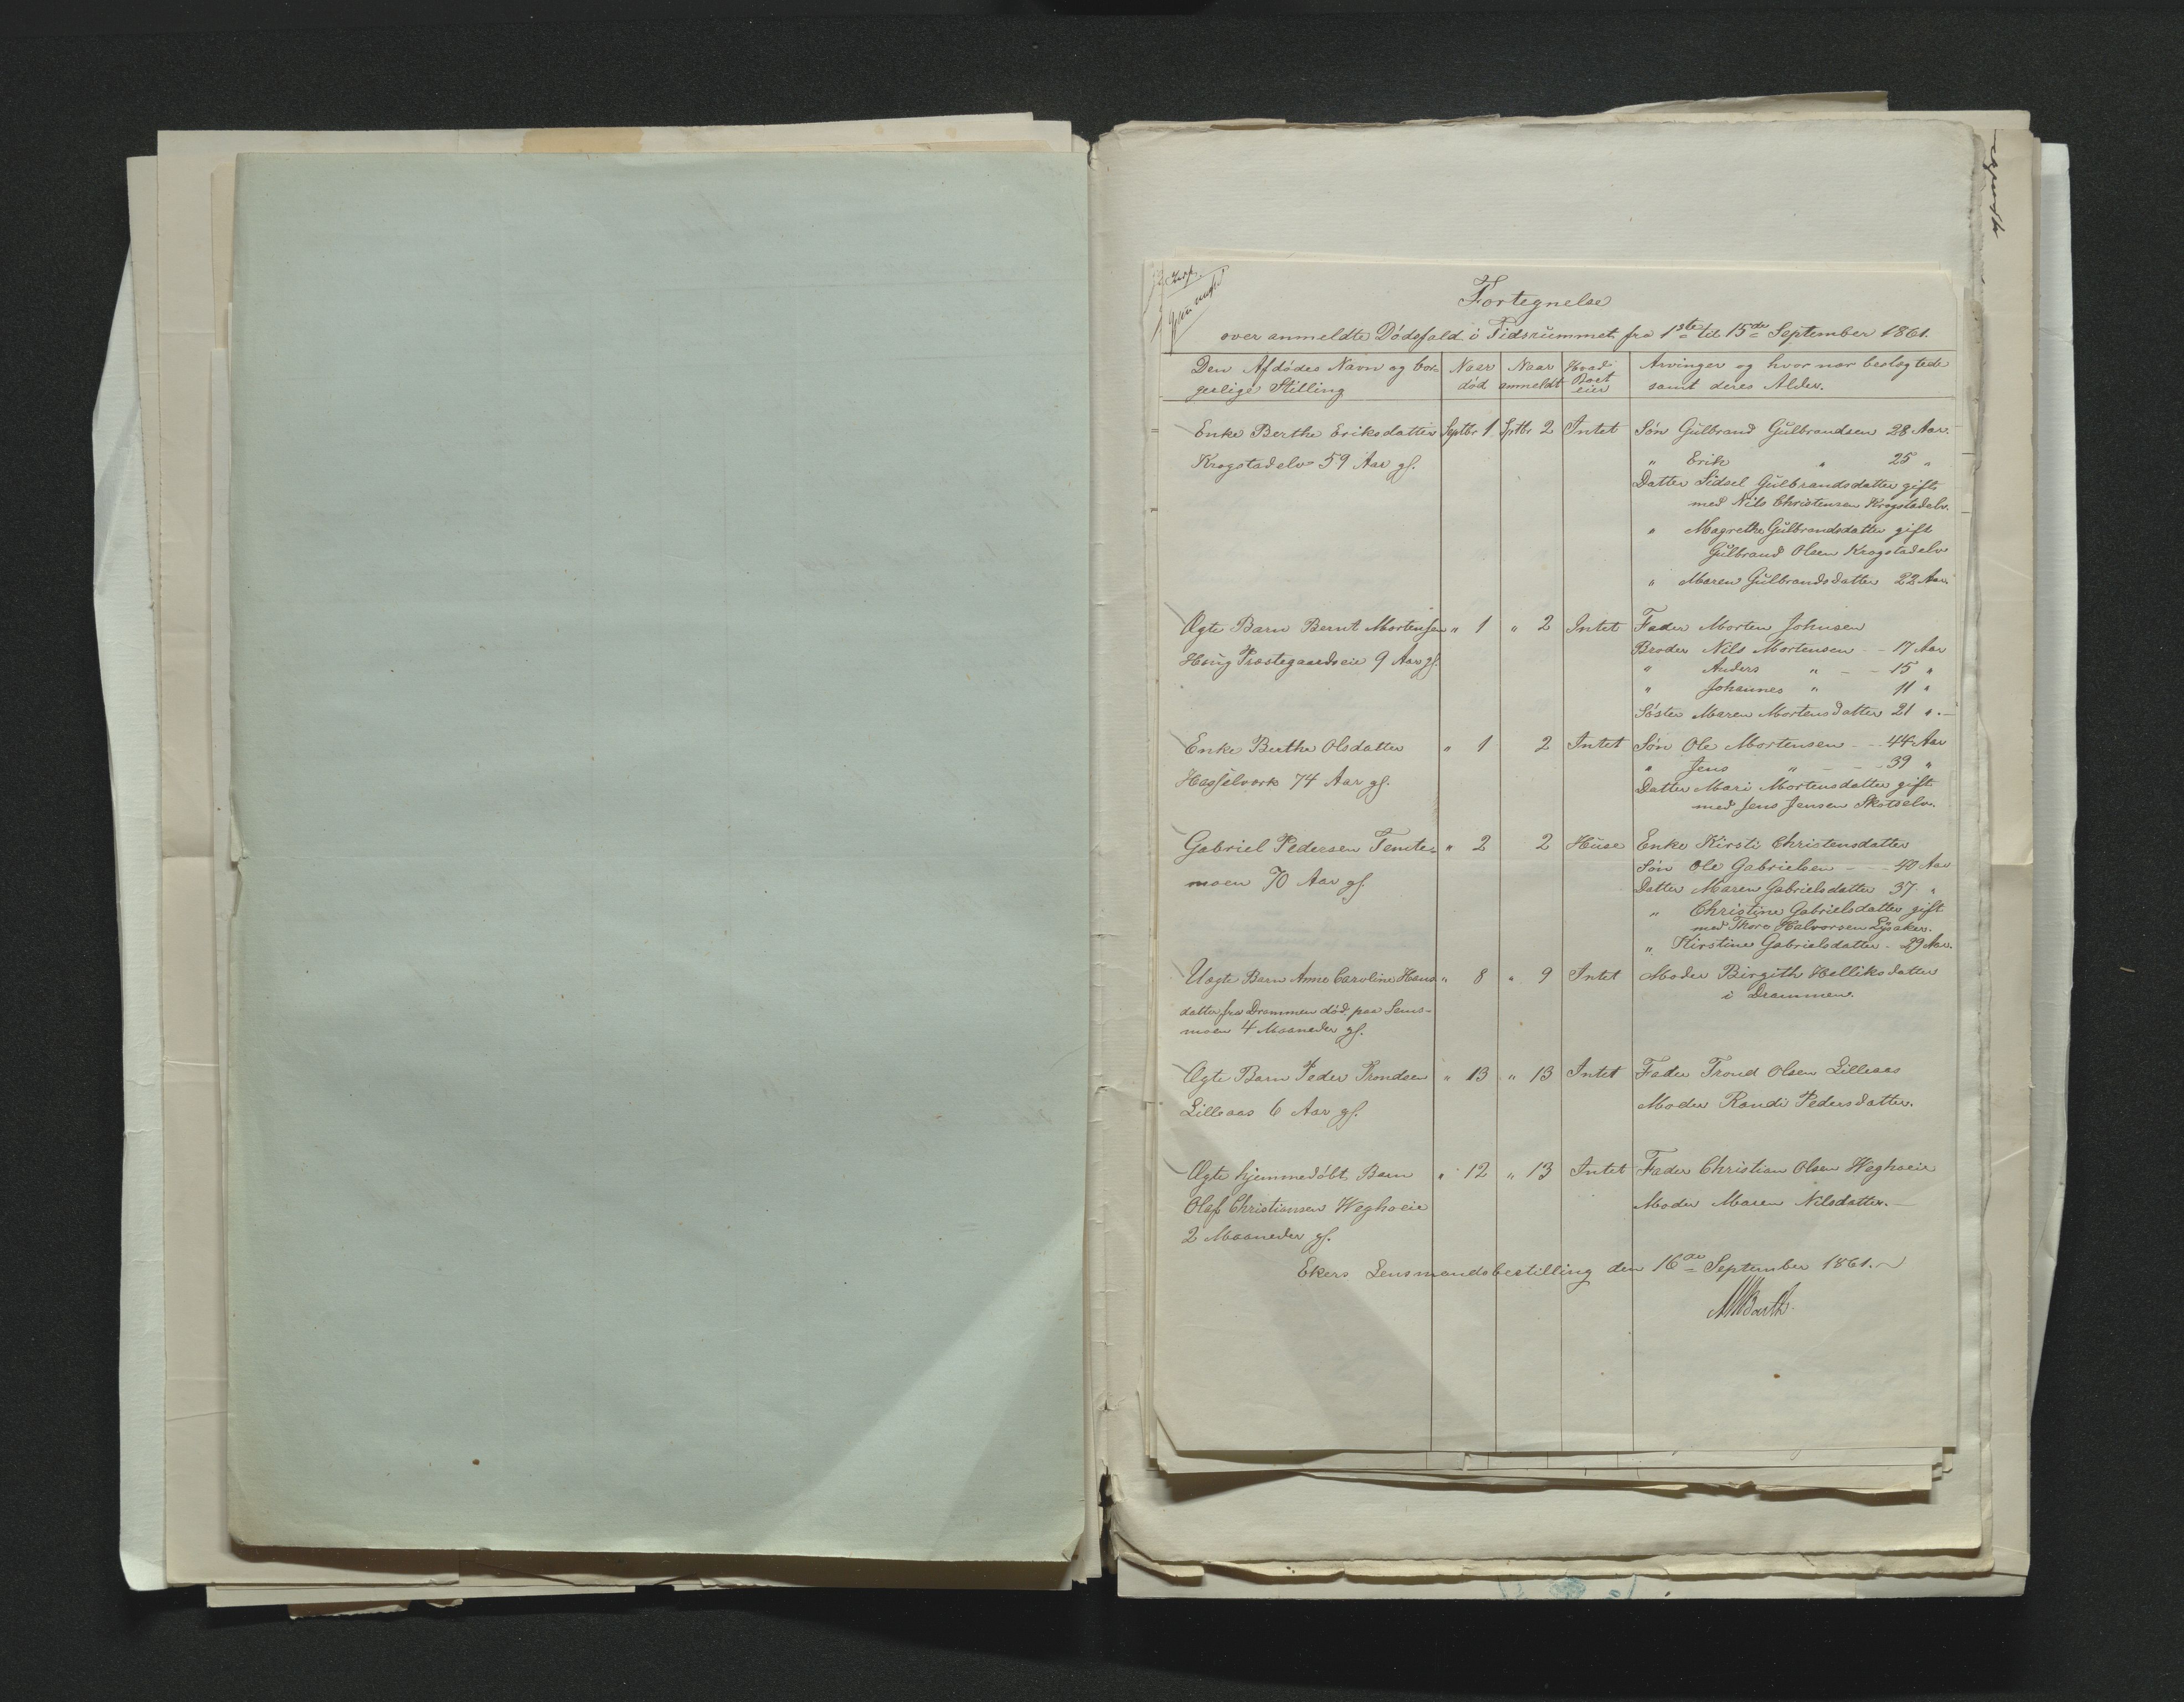 Fortegnelse
over anmeldte Dödsfald i Tidsrummet fra 1ste til 15de September 1861.
Den Afdödes Navn og bor-
gerlige Stilling
Naar
död
Naar
anmeldt
Hvad
Boet
eier
Arvinger og hvor nær beslægtede
samt deres Alder.
Enke Berthe Eriksdatter Septbr 1 Sptbr 2 Intet Sön Gulbrand Gulbrandsen 28 Aar.
Krogstadelv 59 Aar gl.
" Erik " 25 "
Datter Sidsel Gulbrandsdatter gift
med Nils Christensen Krogstadelv.
" Magrethe Gulbrandsdatter gift
Gulbrand Olsen Krogstadelv
" Maren Gulbrandsdatter 22 Aar.
Ægte Barn Bernt Mortensen " 1 " 2 Intet Fader Morten Johnsen
Houg Præstegaardseie 9 Aar gl.
Broder Nils Mortensen - - 17 Aar
" Anders " - - 15 "
" Johannes " 11 "
Söster Maren Mortensdatter 21 ".-
Enke Berthe Olsdatter " 1 2 Intet Sön Ole Mortensen - - 44 Aar
Hasselværk 74 Aar gl.
" Jens " - - - 39 "
Datter Mari Mortensdatter gift
med Jens Jensen Skotselv.
Gabriel Pedersen Temte- " 2 2 Huse Enke Kirsti Christensdatter
moen 70 Aar gl.
Sön Ole Gabrielsen - - 40 Aar
Datter Maren Gabrielsdatter 37 "
" Christine Gabrielsdatter gift
med Thore Halvorsen Lysaker.
" Kirstine Gabrielsdatter - 29 Aar.
Uægte Barn Anne Caroline Hans " 8 " 9 Intet Moder Birgith Helliksdatter
datter fra Drammen död paa Sems-
moen 4 Maaneder gl.
i Drammen.
Ægte Barn Peder Trondsen " 13 " 13 Intet Fader Trond Olsen Lilleaas
Lilleaas 6 Aar gl.
Moder Randi Pedersdatter.
Ægte hjemmedöbt Barn " 12 " 13 Intet Fader Christian Olsen Heghoeie
Olaf Christiansen Heghoeie
Moder Maren Nilsdatter.-
2 Maaneder gl.
Ekers Lensmandsbestilling den 16de September 1861.